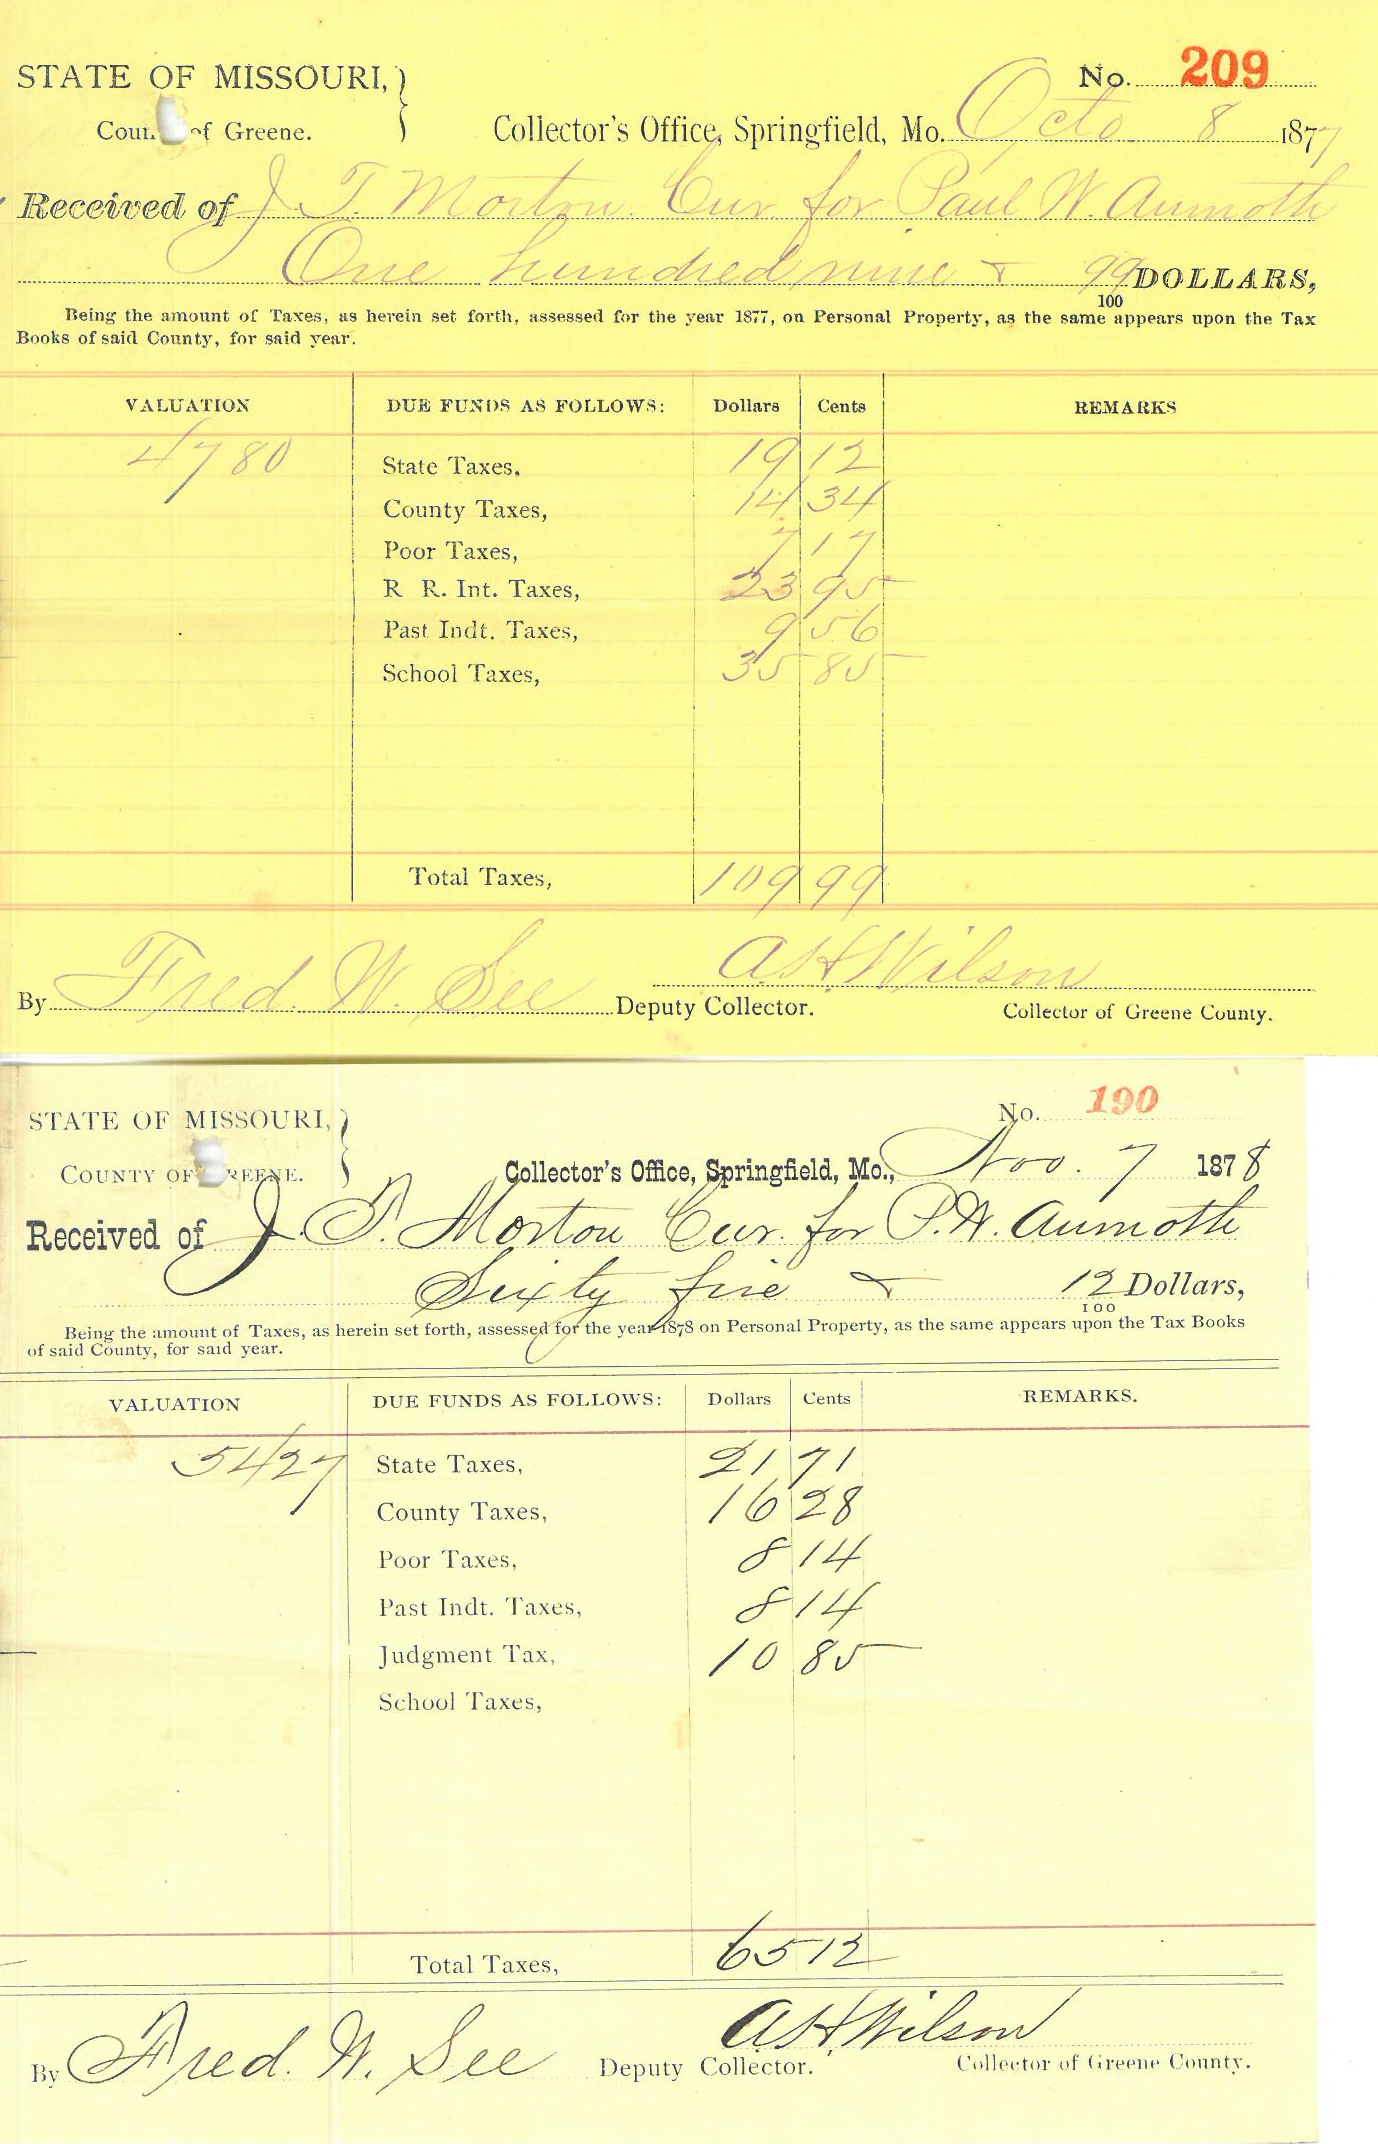 STATE OF MISSOURI,
No. 209
Coun of Greene.
Collector's Office, Springfield, Mo. Octo 8 1877
Received of J. T. Morton Cur for Paul W. Aumoth
One hundred nine & 99/100 DOLLARS,
Being the amount of Taxes, as herein set forth, assessed for the year 1877, on Personal Property, as the same appears upon the Tax
Books of said County, for said year.
VALUATION DUE FUNDS AS FOLLOWS: Dollars Cents REMARKS
4780 State Taxes. 19 12
County Taxes, 14 34
Poor Taxes, 7 17
R R. Int. Taxes, 23 95
Past Indt. Taxes, 9 56
School Taxes, 35 85
Total Taxes, 109 99
A H Wilson
By Fred. W. See Deputy Collector. Collector of Greene County.
No. 190
STATE OF MISSOURI,
COUNTY OF REENE.
Collector's Office, Springfield, Mo., Nov. 7 1878
Received of J. T. Morton Cur. for P. W. Aumoth
Sixty five & 12/100 Dollars,
Being the amount of Taxes, as herein set forth, assessed for the year 1878 on Personal Property, as the same appears upon the Tax Books
of said County, for said year.
VALUATION DUE FUNDS AS FOLLOWS: Dollars Cents REMARKS.
5427 State Taxes, 21 71
County Taxes, 16 28
Poor Taxes, 8 14
Past Indt. Taxes, 8 14
Judgment Tax, 10 85
School Taxes,
Total Taxes, 65 12
A H Wilson
By Fred. W. See Deputy Collector. Collector of Greene County.